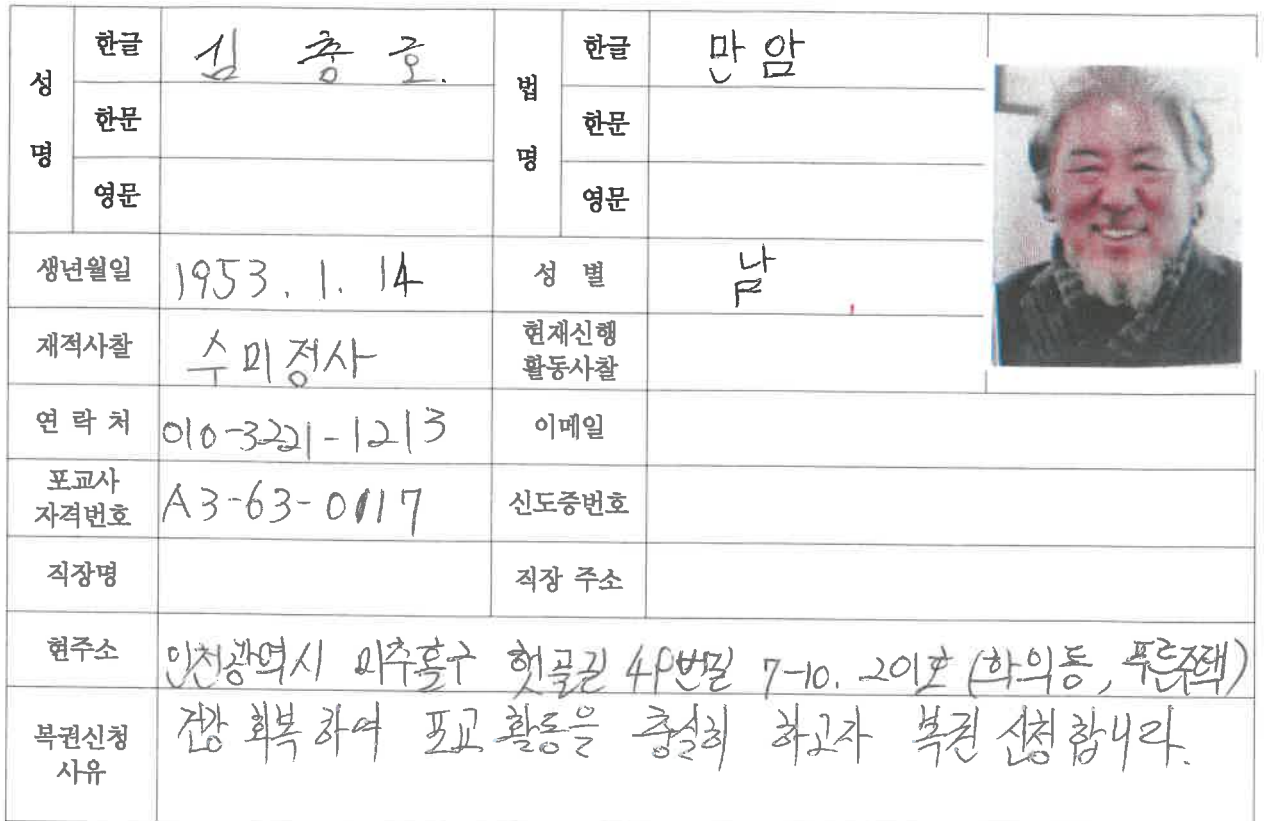 성명 한글 심 충 호. 법명 한글 만암
한문 한문
영문 영문
생년월일 1953. 1. 14 성 별 남
재적사찰 수미정사 현재신행 활동사찰
연 락 처 010-3221-1213 이메일
포교사 자격번호 A3-63-0117 신도증번호
직장명 직장 주소
현주소 인천광역시 미추홀구 햇골길 49번길 7-10. 201호 (학익동, 푸른주택)
복권신청 사유 건강 회복하여 포교 활동을 충실히 하고자 복권 신청합니다.